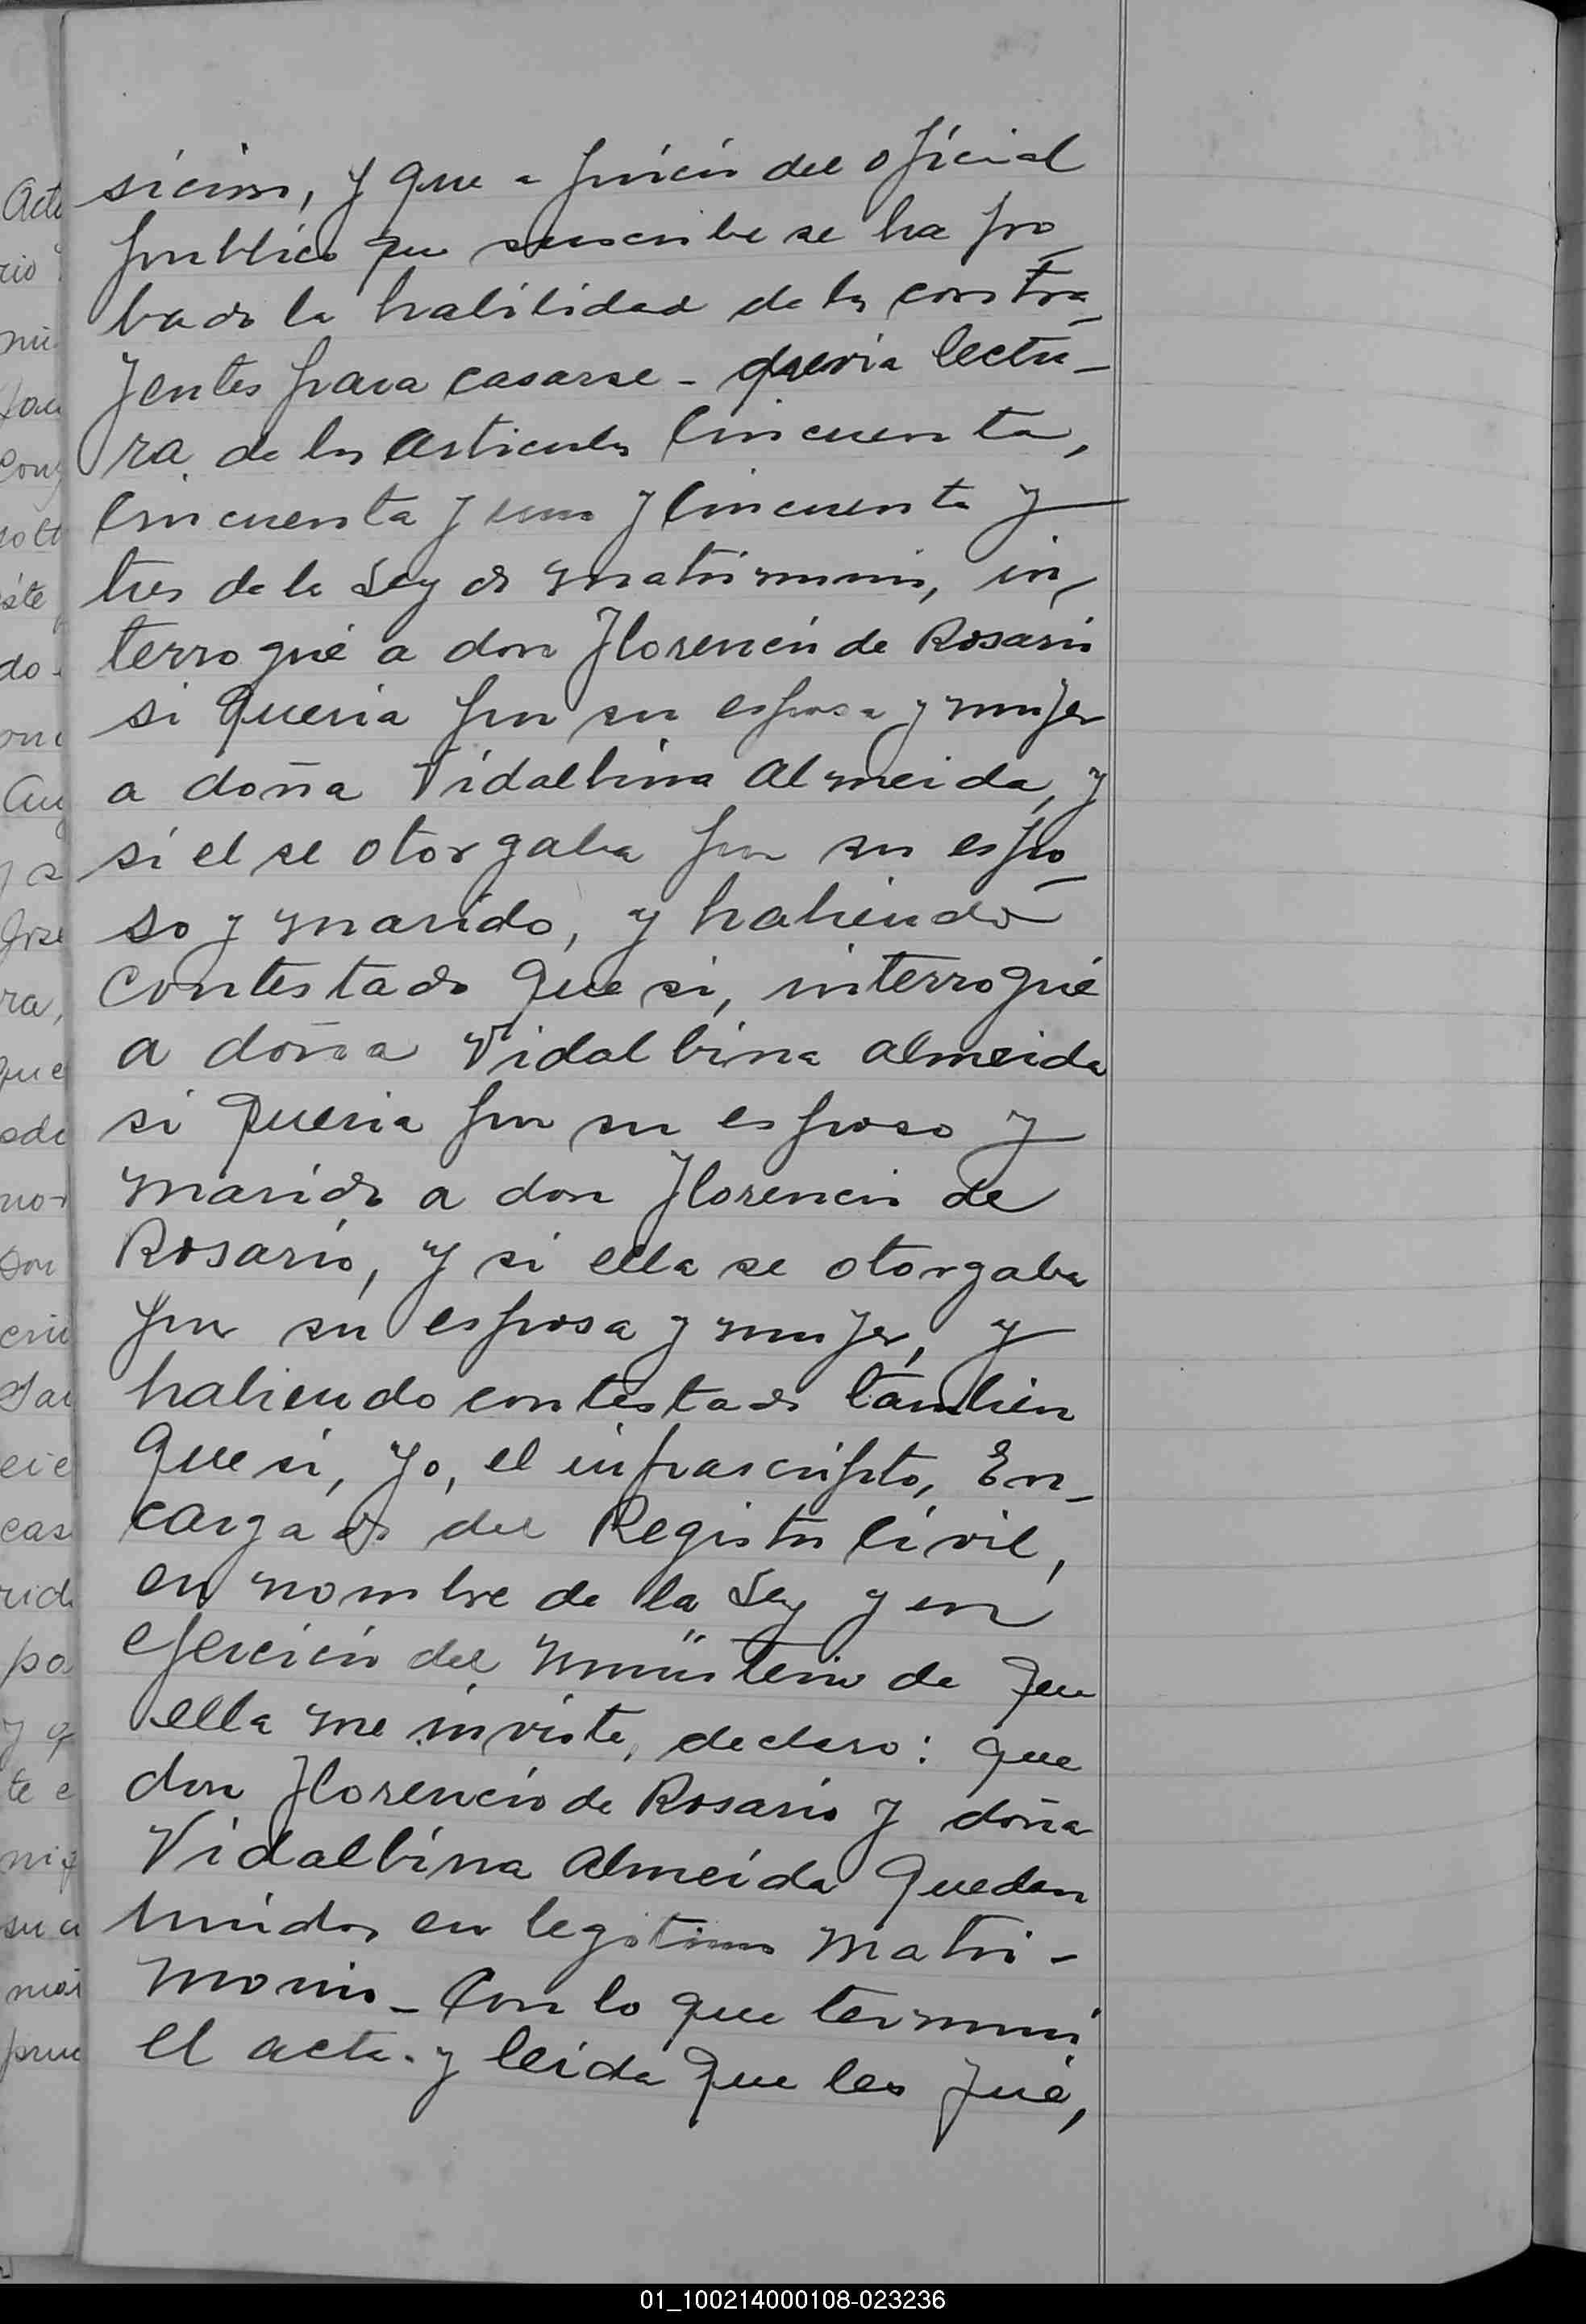 sicion, y que a juicio del oficial
publico que suscribe se ha pro_
bado la habilidad de los contra_
yentes para casarse - previa lectu-
ra de los articulos Cincuenta,
Cincuenta y uno y Cincuenta y
tres de la Ley de matrimonio, in-
terrogué a don Florencio de Rosario
si queria por su esposa y mujer
a doña Vidalbina Almeida, y
si el se otorgaba por su espo_
so y marido, y habiendo
contestado que si, interrogué
a doña Vidalbina Almeida
si queria por su esposo y
marido a don Florencio de
Rosario, y si ella se otorgaba
por su esposa y mujer, y
habiendo contestado tambien
que si, yo, el infrascripto, En-
cargado del Registro Civil,
en nombre de la Ley y en
ejercicio del ministerio de que
ella me inviste, declaro: que
don Florencio de Rosario y doña
Vidalbina Almeida quedan
unidos en legitimo matri-
monio - Con lo que terminó
el acta. y leida que les fué,
01_100214000108-023236